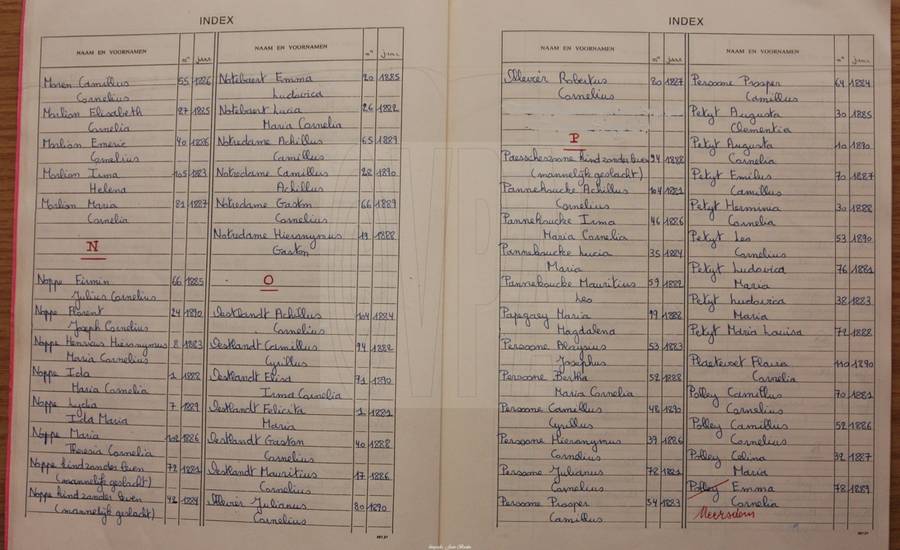 INDEX
NAAM EN VOORNAMEN n° jaar
Morlion Elisabeth 27 1885
Cornelia
Morlion Emeric 40 1886
Cornelius
Morlion Irma 105 1883
Helena
Morlion Maria 81 1887
Cornelia
N
Noppe Firmin 66 1885
Julius Cornelius
Noppe Florent 24 1890
Joseph Cornelius
Noppe Henricus Hieronymus 8 1883
Maria Cornelius
Noppe Ida 1 1888
Maria Cornelia
Noppe Lydia 7 1889
Ida Maria
Noppe Maria 102 1886
Theresia Cornelia
Noppe kind zonder leven 72 1881
(mannelijk geslacht)
Noppe kind zonder leven 48 1884
(mannelijk geslacht)
NAAM EN VOORNAMEN n° jaar
Notebaert Emma 20 1885
Ludovica
Notebaert Lucia 26 1882
Maria Cornelia
Notredame Achillus 65 1889
Camillus
Notredame Camillus 28 1890
Achillus
Notredame Gaston 66 1889
Cornelius
Notredame Hieronymus 19 1888
Gaston
O
Oestlandt Achillus 104 1884
Cornelius
Oestlandt Camillus 94 1882
Cyrillus
Oestlandt Elisa 71 1890
Irma Cornelia
Oestlandt Felicita 1 1881
Maria
Oestlandt Gaston 40 1888
Cornelius
Oestlandt Mauritius 17 1886
Cornelius
Ollevier Julianus 80 1890
Cornelius
INDEX
NAAM EN VOORNAMEN n° jaar
Ollevier Robertus 80 1887
Cornelius
P
kind zonder leven 94 1888
(mannelijk geslacht)
Pannekoucke Achillus 104 1881
Cornelius
Pannekoucke Irma 46 1886
Maria Cornelia
Pannekoucke Lucia 35 1884
Maria
Pannekoucke Mauritius 59 1882
Leo
Papegaey Maria 99 1888
Magdalena
Persoone Aloysius 53 1883
Josephus
Persoone Bertha 52 1888
Maria Cornelia
Persoone Camillus 48 1890
Cyrillus
Persoone Hieronymus 39 1886
Cornelius
Persoone Julianus 78 1881
Cornelius
Persoone Prosper 54 1883
Camillus
NAAM EN VOORNAMEN n° jaar
Persoone Prosper 64 1884
Camillus
Petyt Augusta 30 1885
Clementia
Petyt Augusta 10 1890
Cornelia
Petyt Emilius 70 1887
Camillus
Petyt Herminia 30 1888
Cornelia
Petyt Leo 53 1890
Cornelius
Petyt Ludovica 76 1881
Maria
Petyt Ludovica 38 1883
Maria
Petyt Maria Louisa 72 1888
Plaetevoet Flavia 110 1890
Cornelia
Polley Camillus 70 1881
Cornelius
Polley Camillus 52 1886
Cornelius
Polley Celina 32 1887
Maria
Polley Emma 78 1889
Cornelia